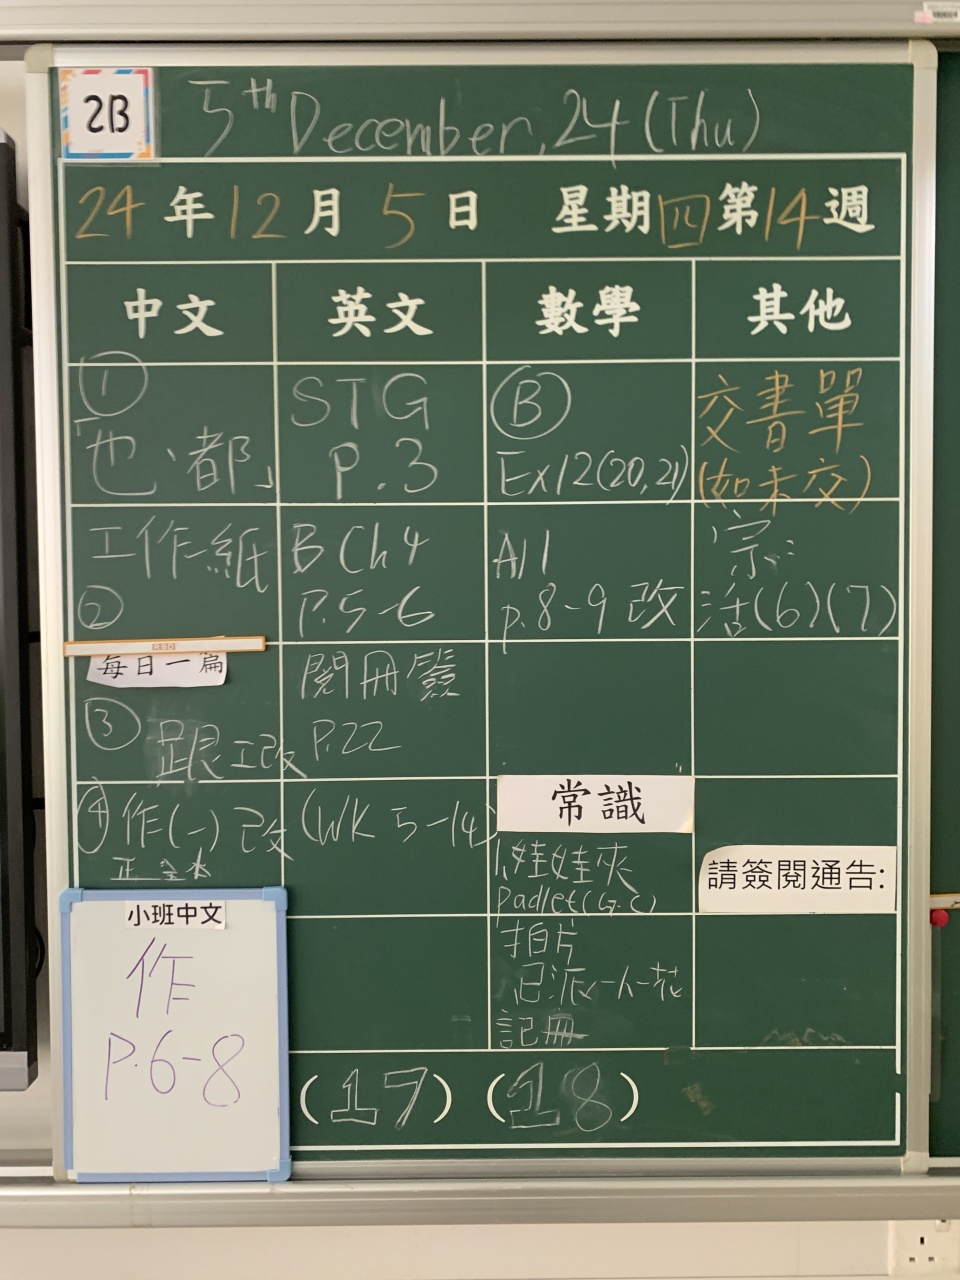 2B
5th December, 24 (Thu)
24年12月5日 星期四第14週
中文
英文
數學
其他
①
「也、都」
工作紙
②
每日一篇
③ 跟工改
④ 作(一)改
小班中文
作
P.6-8
STG
P.3
B Ch4
P.5-6
閱冊簽
P.22
(WK 5-14)
Ⓑ
Ex12(20,21)
A11
p.8-9 改
常識
1.娃娃夾
Padlet(G.C)
拍片
已派一人一花
記冊
交書單
(如未交)
宗:
活(6)(7)
請簽閱通告:
(17) (18)